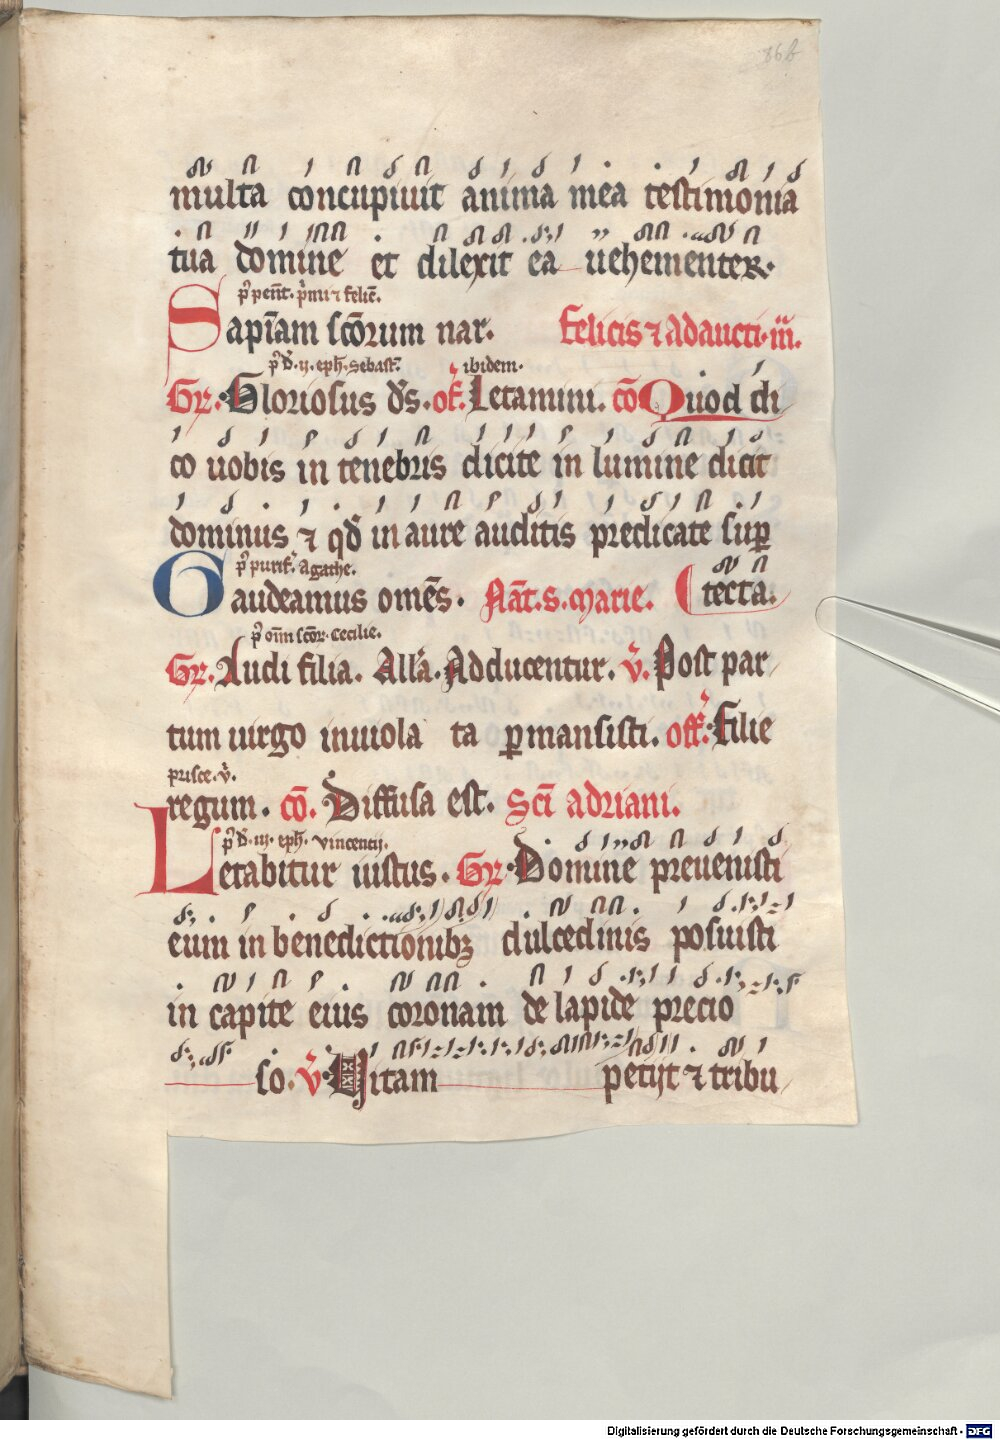 86b
multa concupiuit anima mea testimonia
tua domine et dilexit ea uehementer.
p̄ pent. p̄mi ⁊ felic̄.
Sapīam sc̄orum nar. Felicis ⁊ adaucti. m̄.
p̄ d̄. ij. eph̄. Sebast̄. ibidem.
Gr̄. Gloriosus d̄s. of̄. Letamini. cō Quod di
co uobis in tenebris dicite in lumine dicit
dominus ⁊ qd̄ in aure auditis predicate suꝑ
p̄ purif̄. Agathe.
Gaudeamus om̄es. Nat̄. S. Marie. tecta.
p̄ oīm sc̄or. Cecilie.
Gr̄. Audi filia. All̄a. Adducentur. v̄. Post par
tum uirgo inuiola ta ꝑmansisti. off̄. Filie
prisce. v̄.
regum. cō. Diffusa est. Sc̄i adriani.
p̄ d̄. iij. eph̄. Vincentij.
Letabitur iustus. Gr̄. Domine preuenisti
eum in benedictionibꝫ dulcedinis posuisti
in capite eius coronam de lapide precio
so. v̄. Vitam petijt ⁊ tribu
Digitalisierung gefördert durch die Deutsche Forschungsgemeinschaft - DFG